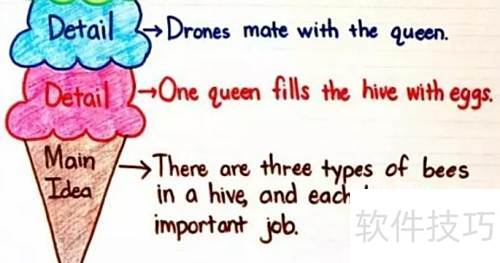 Detail → Drones mate with the queen.
Detail → One queen fills the hive with eggs.
Main Idea → There are three types of bees
in a hive, and each
important job.
软件技巧